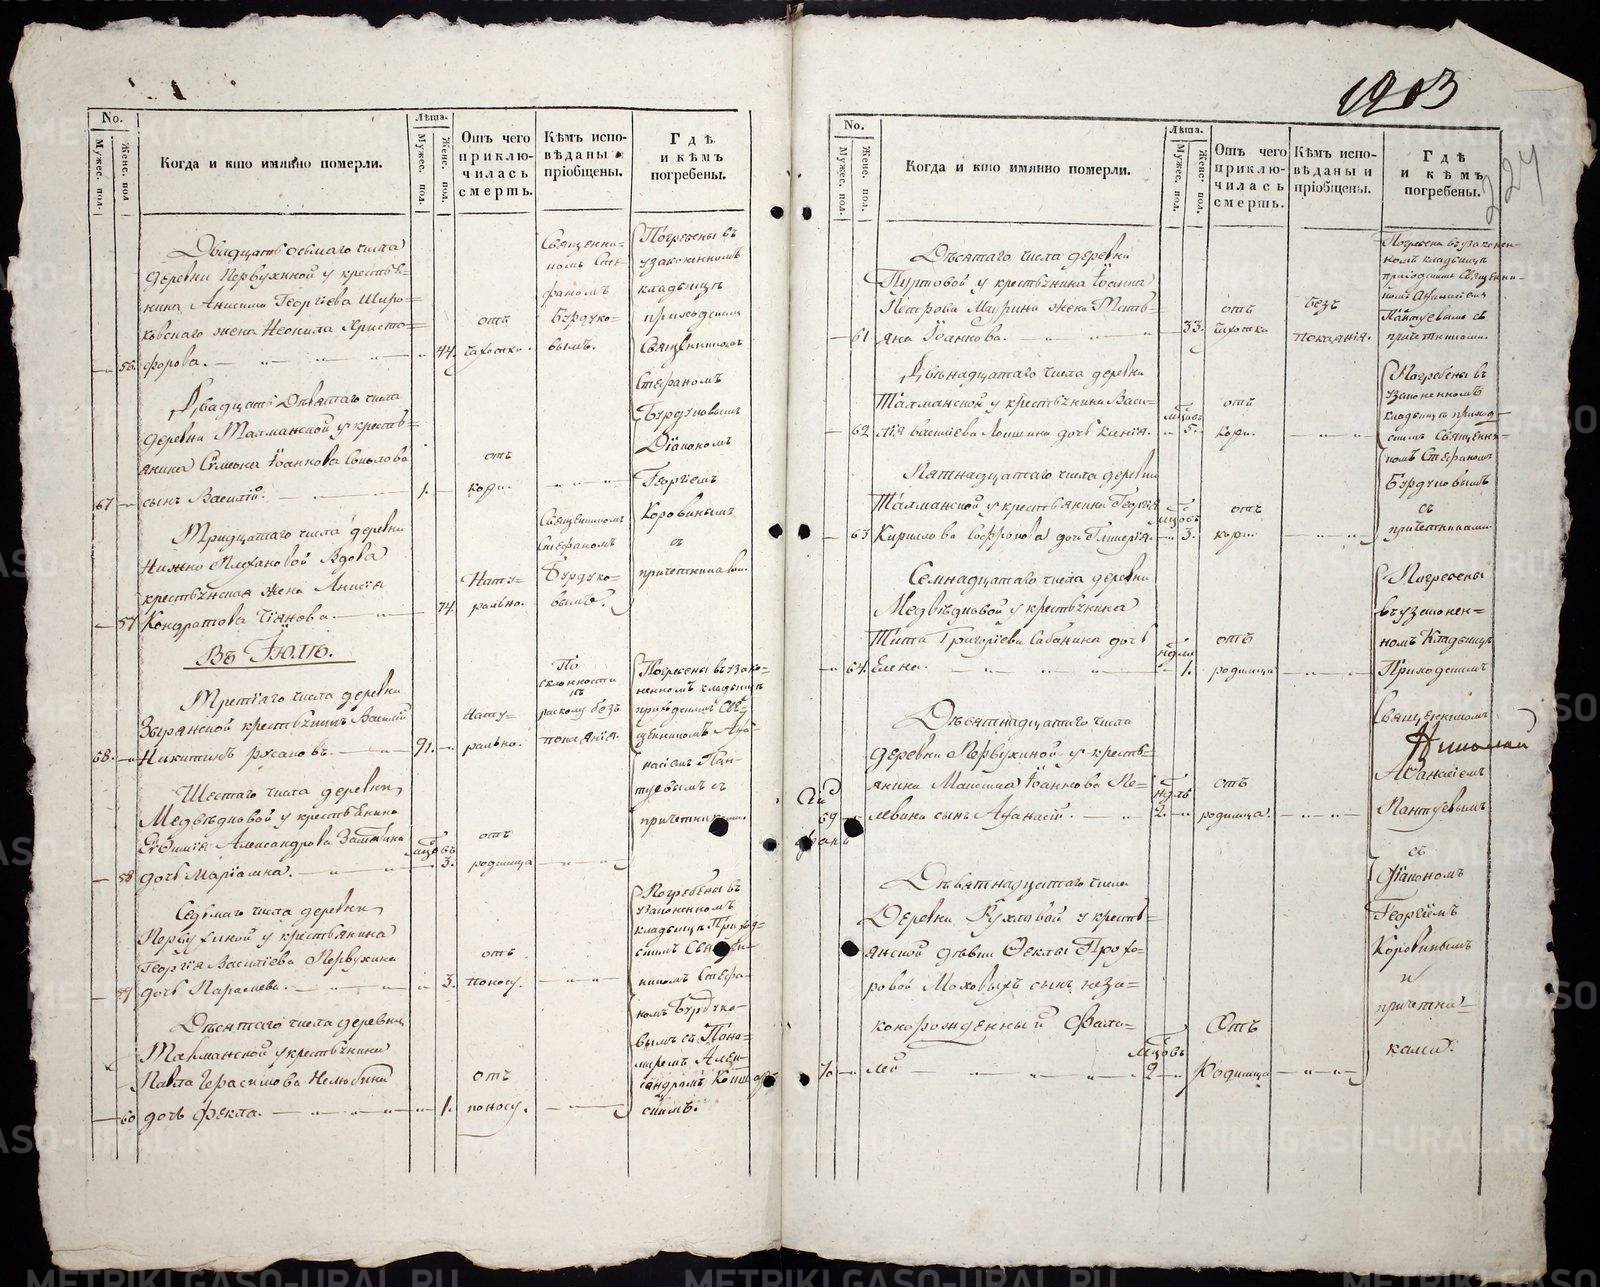 1903
224
No.
Мужес. пол.
Женс. пол
Когда и кто имянно померли.
Лѣта.
Мужес. пол.
Женс. пол.
Отъ чего приклю-
чилась
смерть.
Кѣмъ испо-
вѣданы и
пріобщены.
Гдѣ
и кѣмъ
погребены.
Двадцать осьмаго числа
деревни Первухиной у крестья-
нина Анисима Георгіева Широ-
ковскаго жена Неонила Христо-
56. форова. 44.
отъ
чахотки.
Священни-
комъ Сте-
фаномъ
Бурдуко-
вымъ.
Погребены въ
узаконенномъ
кладбищѣ
приходскимъ
Священникомъ
Стефаномъ
Бурдуковымъ
Діакономъ
Георгіемъ
Коровинымъ
съ
причетниками.
Двадцать девятаго числа
деревни Талманской у кресть-
янина Симеона Іоаннова Соколова
67 сынъ Василій. 1.
отъ
кори.
Тридцатаго числа деревни
Нижно Плехановой вдова
крестьянская жена Анисія
57 Кондратова 74.
Нату-
рально.
Священникомъ
Стефаномъ
Бурдуко-
вымъ.
Въ Іюлѣ.
Третіяго числа деревни
Зырянской крестьянинъ Василій
68. Никитинъ Русаковъ. 91.
Нату-
рально.
По
склонности
къ
расколу безъ
покаянія.
Погребены въ узако-
ненномъ кладбищѣ
приходскимъ Свя-
щенникомъ Афа-
насіемъ Пан-
туевымъ съ
причетниками.
Шестаго числа деревни
Медвѣдковой у крестьянина
Евфимія Александрова
58 дочь Маріамна. мцовъ 3.
отъ
родимца
Седьмаго числа деревни
Первухиной у крестьянина
Георгія Василіева Первухина
59 дочь Параскева. 3.
отъ
поносу.
Погребены въ
узаконенномъ
кладбищѣ Приход-
скимъ Священ-
никомъ Стефа-
номъ Бурдуко-
вымъ съ Поно-
маремъ Алек-
сандромъ
Десятаго числа деревни
Талманской у крестьянина
Павла Герасимова Нелюбина
60 дочь Фекла. 1.
отъ
поносу.
No.
Мужес. пол.
Женс. пол.
Когда и кто имянно померли.
Лѣта.
Мужес. пол.
Женс. пол.
Отъ чего
приклю-
чилась
смерть.
Кѣмъ испо-
вѣданы и
пріобщены.
Гдѣ
и кѣмъ
погребены.
Десятаго числа деревни
Пуртовой у крестьянина Іоанна
Петрова Мурина жена Татъ-
61 яна Іоаннова. 33.
отъ
чахотки
безъ
покаянія.
Погребена въ узаконен-
номъ кладбищѣ
приходскимъ Священни-
комъ Афанасіемъ
Пантуевымъ съ
причетниками.
Двѣнадцатаго числа деревни
Талманской у крестьянина Васи-
62 лія Василіева дочь мцовъ 5.
отъ
кори.
Погребены въ
узаконенномъ
кладбищѣ приход-
скимъ Священни-
комъ Стефаномъ
Бурдуковымъ
съ
причетниками.
Пятнадцатаго числа деревни
Талманской у крестьянина Георгія
63 Кириллова Софронова дочь Гликерія. мцовъ 3.
отъ
кори.
Семнадцатаго числа деревни
Медвѣдковой у крестьянина
Тита Григоріева Сабанина дочь
64. Елена. 1.
отъ
родимца
Погребены
въ узаконен-
номъ кладбищѣ
Приходскимъ
Священникомъ
Николай
Афанасіемъ
Пантуевымъ
съ
Діакономъ
Георгіемъ
Коровинымъ
и
причетни-
ками.
Девятнадцатаго числа
деревни Первухиной у кресть-
янина Максима Іоаннова Пе-
69 левина сынъ Афанасій. 2.
отъ
родимца.
Девятнадцатаго числа
Деревни Кухловой у кресть-
янской дѣвки Феклы Прохо-
ровой Моховыхъ сынъ неза-
коннорожденный Фала-
70 лей мцовъ 2
Отъ
Родимца